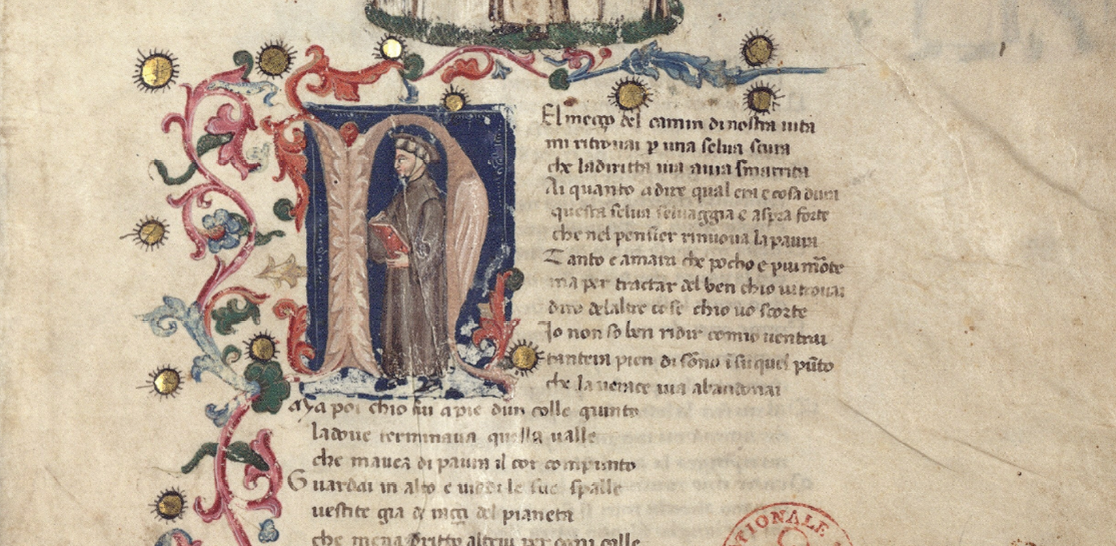 N
El mezzo del camin di nostra uita
mi ritrouai p una selua scura
che ladiritta uia auia smarrita
Ai quanto adire qual era e cosa dura
questa selua seluaggia e aspra forte
che nel pensier rinuoua la paura
Tanto e amara che pocho e piu morte
ma per tractar del ben chio ui trouai
diro delaltre cose chio uo scorte
Jo non so ben ridir comio uentrai
tantera pien di sono isu quel pūto
che la uerace uia abandonai
Ma poi chio fui apie dun colle giunto
ladoue terminaua quella ualle
che mauea di paura il cor compunto
Guardai in alto e uiddi le sue spalle
uestite gia de raggi del pianeta
che mena dritto altrui per ogni colle
TIONALE